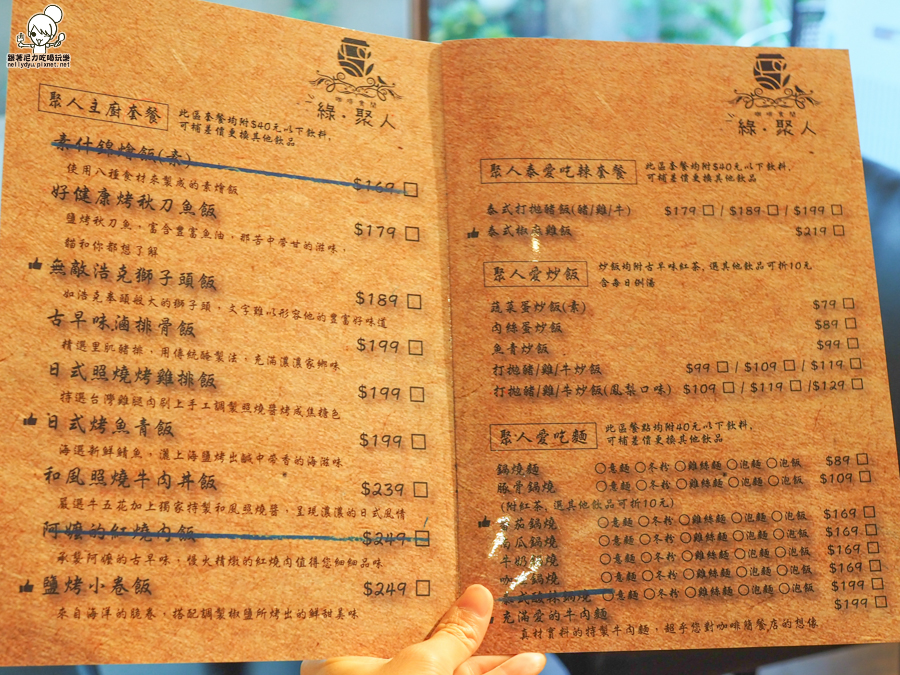 跟著尼力吃喝玩樂
nellydyu.pixnet.net
咖啡食間
綠·聚人
聚人主廚套餐
此區套餐均附$40元以下飲料,
可補差價更換其他飲品
素什錦燴飯(素) $169
使用八種食材來製成的素燴飯
好健康烤秋刀魚飯 $179
鹽烤秋刀魚,富含豐富魚油,那苦中帶甘的滋味,
貓和你都想了解
無敵浩克獅子頭飯 $189
如浩克拳頭般大的獅子頭,文字難以形容他的豐富好味道
古早味滷排骨飯 $199
精選里肌豬排,用傳統醃製法,充滿濃濃家鄉味
日式照燒烤雞排飯 $199
特選台灣雞腿肉刷上手工調製照燒醬烤成焦糖色
日式烤魚青飯 $199
海選新鮮鯖魚,灑上海鹽烤出鹹中帶香的海滋味
和風照燒牛肉丼飯 $239
嚴選牛五花加上獨家特製和風照燒醬,呈現濃濃的日式風情
阿嬤的紅燒肉飯 $249
承襲阿嬤的古早味,慢火精燉的紅燒肉值得您細細品味
鹽烤小卷飯 $249
來自海洋的脆卷,搭配調製椒鹽所烤出的鮮甜美味
咖啡食間
綠·聚人
聚人泰愛吃辣套餐
此區套餐均附$40元以下飲料,
可補差價更換其他飲品
泰式打拋豬飯(豬/雞/牛) $179 / $189 / $199
泰式椒麻雞飯 $219
聚人愛炒飯
炒飯均附古早味紅茶,選其他飲品可折10元
含每日例湯
蔬菜蛋炒飯(素) $79
肉絲蛋炒飯 $89
魚青炒飯 $99
打拋豬/雞/牛炒飯 $99 / $109 / $119
打拋豬/雞/牛炒飯(鳳梨口味) $109 / $119 / $129
聚人愛吃麵
此區餐點均附40元以下飲料,
可補差價更換其他飲品
鍋燒麵 ○意麵○冬粉○雞絲麵○泡麵○泡飯 $89
豚骨鍋燒 ○意麵○冬粉○雞絲麵○泡麵○泡飯 $109
(附紅茶,選其他飲品可折10元)
番茄鍋燒 ○意麵○冬粉○雞絲麵○泡麵○泡飯 $169
南瓜鍋燒 ○意麵○冬粉○雞絲麵○泡麵○泡飯 $169
牛奶鍋燒 ○意麵○冬粉○雞絲麵○泡麵○泡飯 $169
咖哩鍋燒 ○意麵○冬粉○雞絲麵○泡麵○泡飯 $169
泰式酸辣鍋燒 ○意麵○冬粉○雞絲麵○泡麵○泡飯 $199
充滿愛的牛肉麵 $199
真材實料的特製牛肉麵,超乎您對咖啡簡餐店的想像